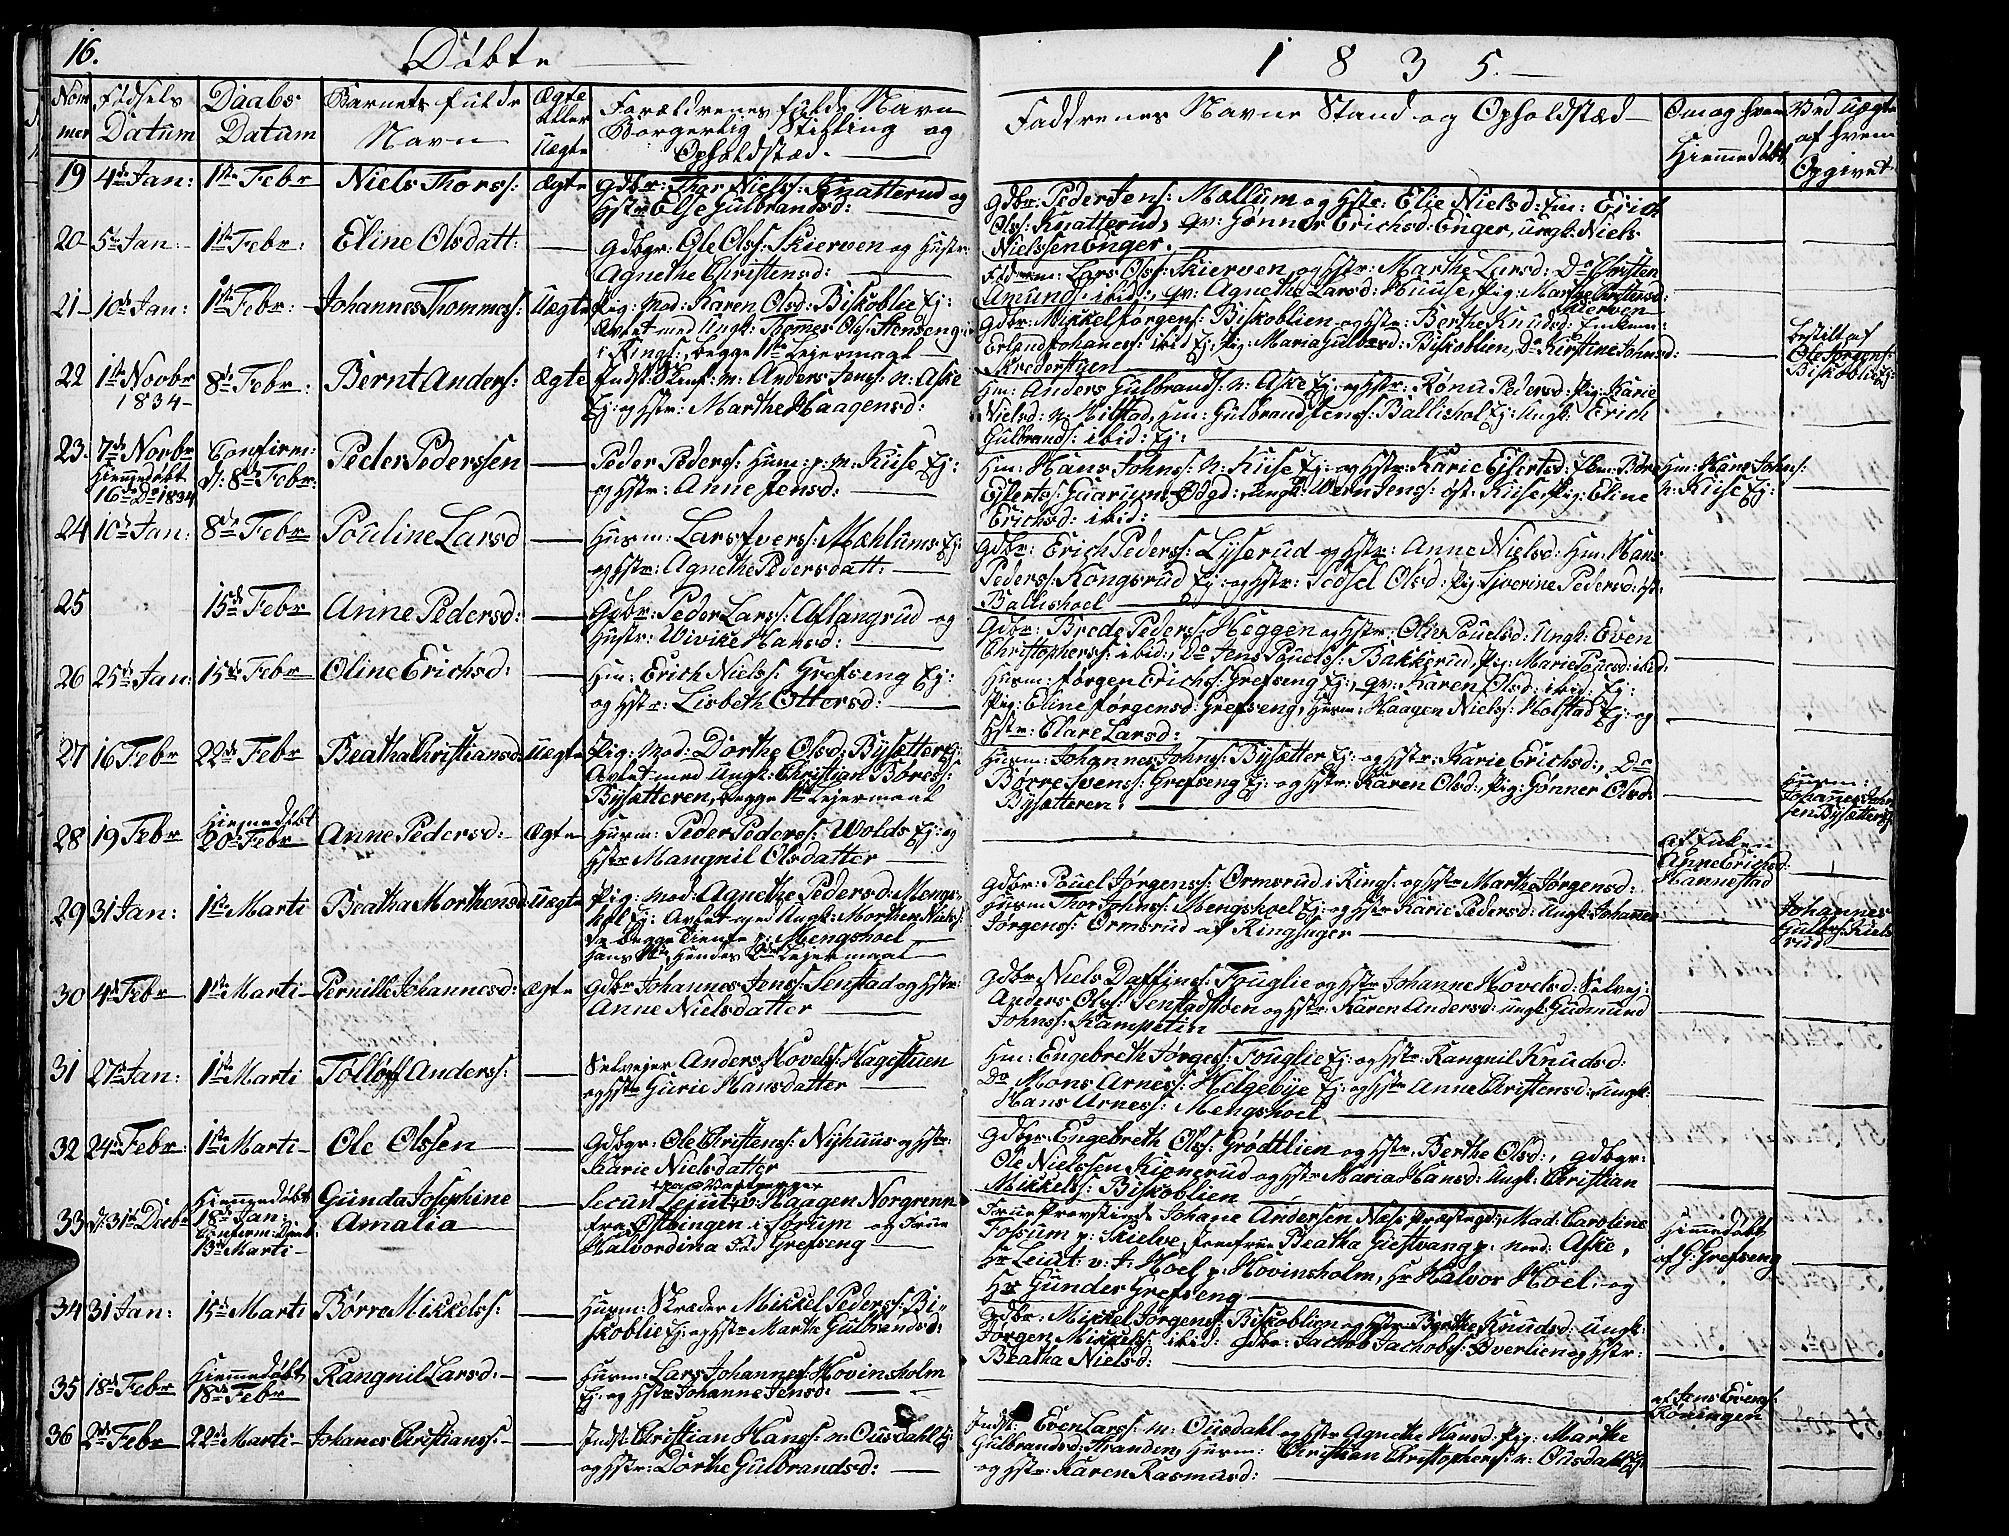 16. Döbte 1 8 3 5.
Nommer Födsels Datum Daabs Datum Barnets fulde Navn Ægte Eller Uægte Forældrenes fulde Navn Borgerlig Stilling og Opholdstæd. Faddrenes Navne Stand og Opholdstæd Om og hvem Hiemmedöbt Ved uægte af hvem Opgivet
19 4de Jan: 1ste Febr Niels Thorss: Ægte Gdbr: Thor Nielss: Knatterud og
Hstr: Else Gulbrandsd:
Gdbr: Peder Jens: Mællum og Hstr: Elie Nielsd: Em: Erich
Olss: Knatterud, qv: Gönner Erichsd: Enger, Ungk: Niels
Nielssen Enger.
20 5te Jan: 1ste Febr: Eline Olsdatt: Gdbgr: Ole Olss: Skierven og Hustr:
Agnethe Christensd:
Lars Olss: Skierven og Hstr: Marthe Larsd: Do Christen
Amunds: ibid:, qv: Agnethe Larsd: Huuse, Pig: Marthe Christensd:
Skierven
21 10de Jan: 1ste Febr: Johannes Thommess: Uægte Pig: Mod: Karen Olsd: Biskoblie Ej:
Avlet med Ungk: Thommes Olss: Stenseng
i Rings:, begge 1ste Lejermaal
Gdbr: Mikkel Jörgens: Biskoblien og Hstr: Berthe Knudsd:
Johanes: ibid Ej:, Pig: Maria Gulbrsd: Biskoblien, Do Kirstine Johnsd:
Skrederstuen
bestilt af
Ole Jörgens:
Biskoblie Ej:
22 1ste Novbr 1834 8de Febr: Bernt Anders: Ægte Indst: Anders Jens: n: Aske
Ej: og Hstr: Marthe Haagensd:
Hm: Anders Gulbrands: n: Aske Ej: og Hstr: Rönnu Pedersd: Pig: Karie
Nielsd: n: Milstad, Hm: Gulbrand Jens: Ballishol Ej: Ungk: Erich
Gulbrands: ibid: Ej:
23. 7de Novbr Hiemmedöbt 16de Do 1834 Confirm: d: 8de Febr: Peder Pederssen Peder Peders: Husm: p: n: Kise Ej:
og Hstr: Anne Jensd:
Hm: Hans Johns: N: Kise Ej: og Hstr: Karie Ejlertsd: Börre
Ejlerts: Ödgd: Ungk: Wern Jens: öst: Kise, Pig: Eline
Erichsd: ibid:
Hm: Hans Johns:
n: Kise Ej:
24 10de Jan: 8de Febr Pouline Larsd Husm: Lars Ivers: Mæhlums Ej:
og Hstr: Agnethe Pedersdatt:
Gdbr: Erich Peders: Lyserud og Hstr: Anne Nielsd: Hm: Hans
Peders: Kongsrud Ej: og Hstr: Sidsel Olsd: Pig: Siverine Pedersd: öst:
Ballishoel
25 15de Febr Anne Pedersd: Gdbr: Peder Larss: Aflangrud og
Hustr: Wivike Hansd:
Gdbr: Brede Peders: Heggen og Hstr: Olia Pouelsd: Ungk: Even
Christophers: ibid:, Do Jens Pouels: Bakkerud Pig: Marie Pouelsd: ibid:
26 25de Jan: 15de Febr Oline Erichsd: Hm: Erich Niels: Grefseng Ej:
og Hstr: Lisbeth Ottersd:
Husm: Jörgen Erichs: Grefseng Ej:, qv: Karen Olsd: ibid: Ej:
Pig: Eline Jörgensd: Grefseng, Husm: Haagen Niels: Holstad Ej: og
Hstr: Clare Larsd:
27 16 Febr 22de Febr Beatha Christiansd: Uægte Pig: Mod: Dorthe Olsd: Bysætter Ej:
Avlet med Ungk: Christian Börress:
Bysætteren, begge 1ste Lejermaal
Husm: Johannes Johns: Bysætter Ej: og Hstr: Karie Erichsd:, Do
Börre Svens: Grefseng Ej: og Hstr: Karen Olsd:, Pig: Gönner Olsd:
Bysætteren.
Husm:
Johannes Johns
sen Bysætter Ej
28 19 Febr Hiemmedöbt 20de Febr Anne Pedersd: Ægte Husm: Peder Peders: Wolds Ej: og
Hstr: Mangnil Olsdatter
af Enken
Anne Erichsd:
Hannestad
29 31 Jan: 1ste Marti Beatha Morthensd: Uægte Pig: Mod: Agnethe Pedersd: Mengs-
hol Ej: Avlet med Ungk: Morthen Niels:
da begge Tiente p: Mengshoel
hans 1ste hendes 2den Lejermaal
Gdbr: Pouel Jörgenss: Ormsrud i Rings: og Hstr: Marthe Jörgensd:
Husm Thor Johns: Mengshoel Ej: og Hstr Karie Pedersd: Ungk: Johannes
Jörgens: Ormsrud af Ringsager
Johannes
Gulbrs: Kiels
rud
30 4de Febr 1ste Marti Pernille Johannesd: Ægte Gdbr Johannes Jens: Senstad og Hstr:
Anne Nielsdatter
Gdbr Niels Daffins: Fouglie og Hstr Johanne Hovelsd: Selvej:
Anders Olss: Senstadstoen og Hstr: Karen Andersd: Ungk: Gudmund
Johns: Kampetin
31 27de Jan: 1ste Marti Tolloff Anderss: Selvejer Anders Hovels: Hagestuen
og Hstr Gurie Hansdatter
Hm: Engebreth Jörgens: Fouglie Ej: og Hstr Rangnil Knudsd:
Do Mons Arnes: Helgebye Ej: og Hstr Anne Christensd: Ungk:
Hans Arness: Mengshoel
32 24de Febr: 1ste Marti Ole Olssen Gdbgr: Ole Christens: Nyhuus og Hstr:
Karie Nielsdatter
Gdbgr: Engebreth Olss: Grödtlien og Hstr: Berthe Olsd:, Gdbgr:
Ole Nielssen Kionerud og Hstr: Maria Hansd: Ungk: Christian
Mikkelss: Biskoblien
33 d: 31te Decbr Hiemmedöbt 18de Jan: Confirm: 13de Marti Gunda Josephine
Amalia Secunt Lejut: v: Haagen Norgrenn
fra Östbingen i Sorum og Frue
Halvordina Fad Grefseng
Frue Provstinde Johane Andersen Næss Præstegd: Mad: Caroline
Fossum p: Skielve, Jomfrue Beatha Giestvang p: nord: Aske,
Hr Leiut: v: F: Hoel p: Hovinsholm, Hr Halvor Hoel og
Hr Gunder Grefseng
Hiemmedöbt
af G: Grefseng
34 31 Jan: 15de Marti Börre Mikkelss: Husm: Skræder Mikkel Peders: Bi-
skoblie Ej: og Hstr Marthe Gulbrandsd:
Gdbr: Mikkel Jörgens: Biskoblien og Hstr Berthe Knudsd: Ungk:
Jörgen Mikkels: ibid: Gdbr: Jachob Jachobs: Överlien og Hstr:
Beatha Nielsd:
35 18de Febr Hiemmedöbt 18de Febr Rangnil Larsd: Husm: Lars Johannes: Hovinsholm
Ej: og Hstr Johanne Jensd:
af Jens Evens:
Röningen
36 2de Febr 22de Marti Johanes Christianss: Indst: Christian Hans: n: Ousdahl Ej:
og Hstr: Dorthe Gulbrandsd:
Indst: Even Larss: n: Ousdahl og Hstr Agnethe Hansd: Pig: Marthe
Gulbrandsd: Stranden, Husm: Christian Christophers: n: Ousdahl Ej:
og Hstr: Karen Rasmusd: